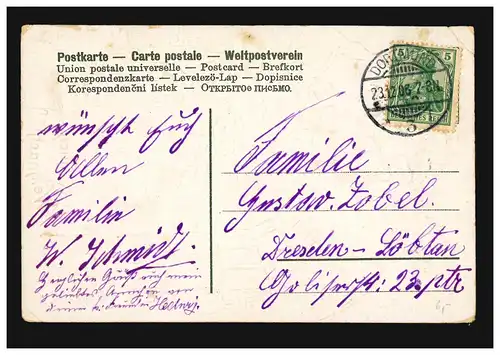 Postkarte — Carte postale — Weltpostverein
Union postale universelle — Postcard — Brefkort
Correspondenzkarte — Levelező-Lap — Dopisnice
Korespondenční lístek — ОТКРЫТОЕ ПИСЬМО.
5
23.12.05. 7-8
wünscht Euch
Allen
Familie
W. Schmidt.
Herzlichen Gruß auch mein
geliebtes von
Familie
Gustav Zobel.
Dresden-Löbtau
23 ptr